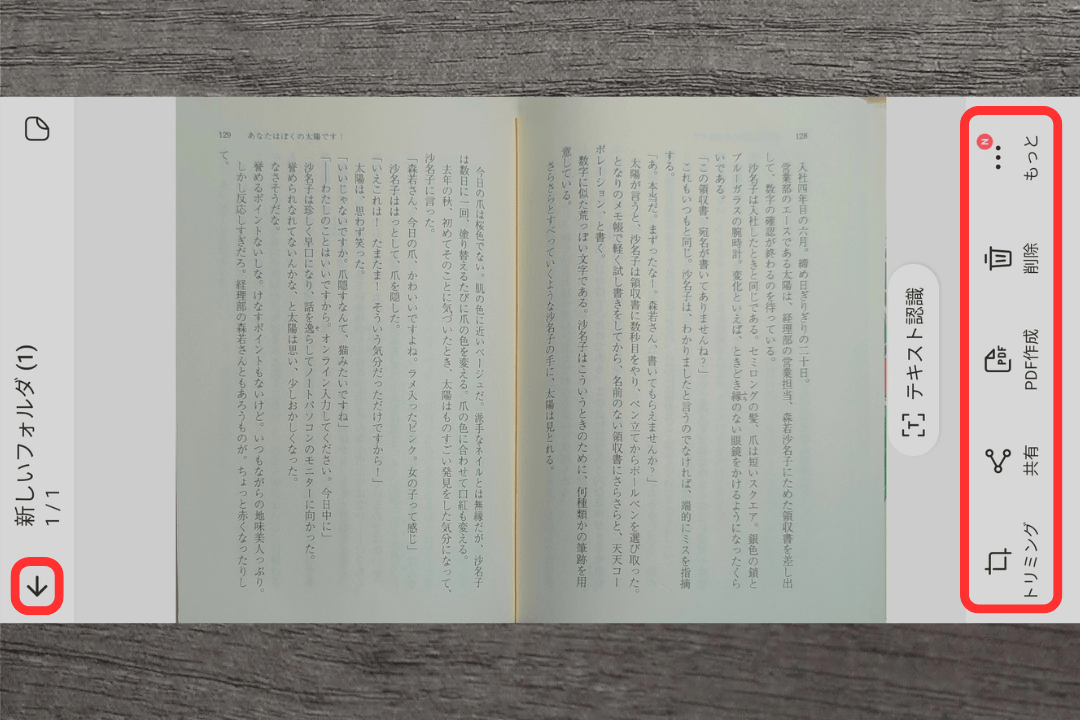 新しいフォルダ (1)
1 / 1
128
入社四年目の六月。締め日ぎりぎりの二十日。
営業部のエースである太陽は、経理部の営業担当、森若沙名子にためた領収書を差し出
して、数字の確認が終わるのを待っている。
沙名子は入社したときと同じである。セミロングの髪、爪は短いスクエア。銀色の鎖と
ブルーガラスの腕時計。変化といえば、ときどき縁のない眼鏡をかけるようになったくら
いである。
「この領収書、宛名が書いてありませんね?」
これもいつもと同じ。沙名子は、わかりましたと言うのでなければ、端的にミスを指摘
する。
「あ。本当だ。まずったなー。森若さん、書いてもらえませんか?」
太陽が言うと、沙名子は領収書に数秒目をやり、ペン立てからボールペンを選び取った。
となりのメモ帳で軽く試し書きをしてから、名前のない領収書にさらさらと、天天コー
ポレーション、と書く。
数字に似た荒っぽい文字である。沙名子はこういうときのために、何種類かの筆跡を用
意している。
さらさらとすべっていくような沙名子の手に、太陽は見とれる。
129 あなたはぼくの太陽です!
今日の爪は桜色でない。肌の色に近いベージュだ。派手なネイルとは無縁だが、沙名子
は数日に一回、塗り替えるたびに爪の色を変える。爪の色に合わせて口紅も変える。
去年の秋、初めてそのことに気づいたとき、太陽はものすごい発見をした気分になって、
沙名子に言った。
「森若さん、今日の爪、かわいいですよね。ラメ入ったピンク。女の子って感じ」
沙名子ははっとして、爪を隠した。
「いえこれは! たまたま! そういう気分だっただけですから!」
太陽は、思わず笑った。
「いいじゃないですか。爪隠すなんて、猫みたいですね」
「――わたしのことはいいですから。オンライン入力してください。今日中に」
沙名子は珍しく早口になり、話を逸らしてノートパソコンのモニターに向かった。
誉められなれてないんかな、と太陽は思い、少しおかしくなった。
なさそうだな。
誉めるポイントないしな。けなすポイントもないけど。いつもながらの地味美人っぷり。
しかし反応しすぎだろ。経理部の森若さんともあろうものが。ちょっと赤くなったりし
て。
テキスト認識
トリミング
共有
PDF
PDF作成
削除
N
もっと